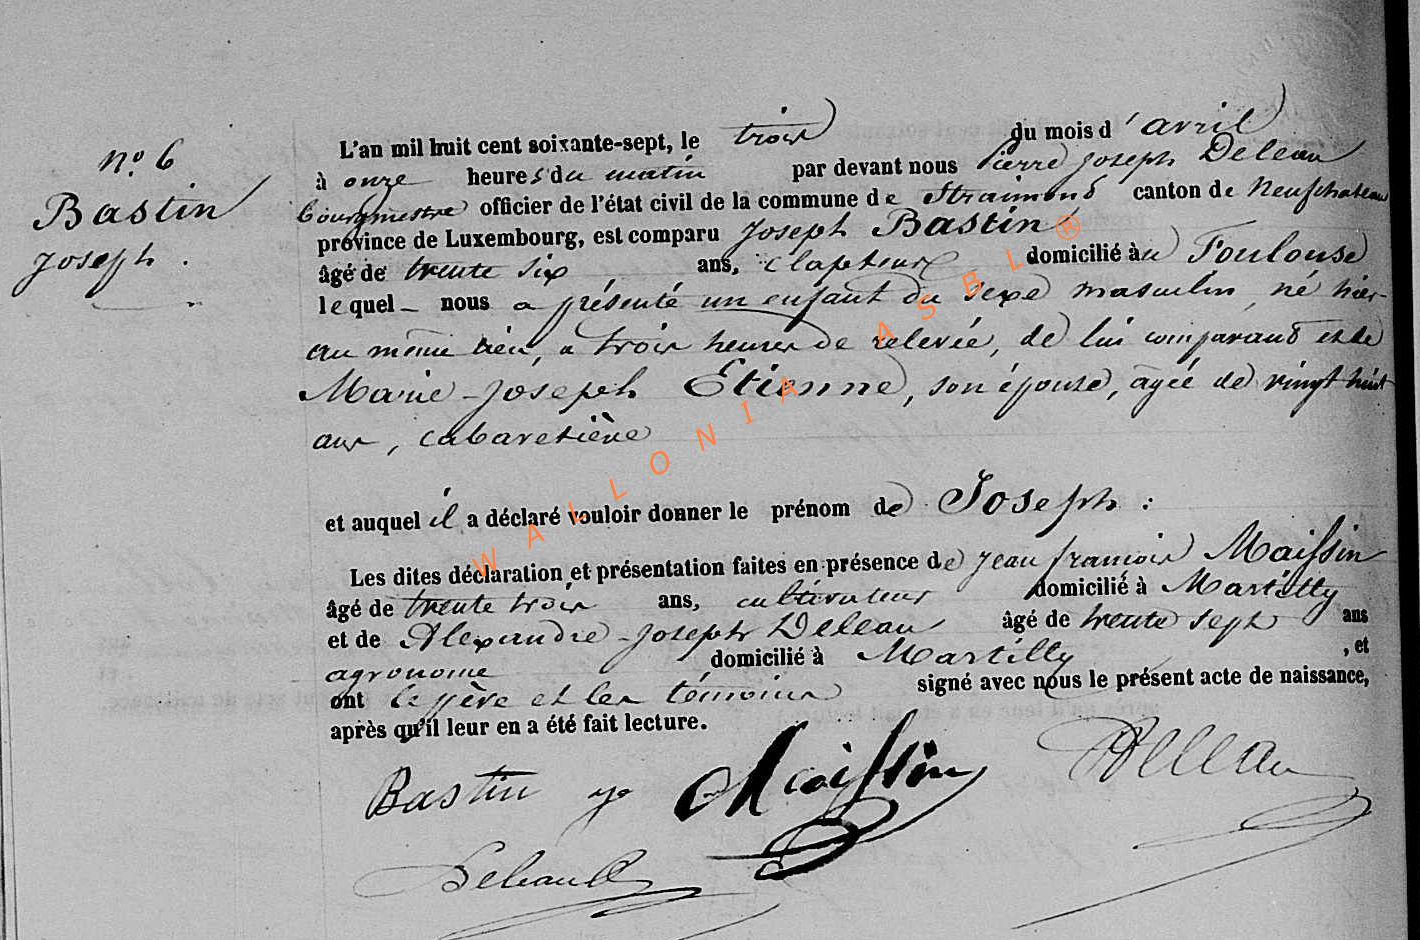 n.° 6
Bastin
Joseph.
L'an mil huit cent soixante-sept, le trois du mois d'avril
à onze heures du matin par devant nous Pierre Joseph Deleau
bourgmestre officier de l'état civil de la commune de Straimont canton de Neufchateau
province de Luxembourg, est comparu Joseph Bastin
âgé de trente six ans, domicilié à Foulouse
lequel nous a présenté un enfant du sexe masculin, né hier
au même lieu, à trois heures de relevée, de lui comparant et de
Marie-Joseph Etienne, son épouse, âgée de vingt huit
ans, cabaretière
et auquel il a déclaré vouloir donner le prénom de Joseph :
Les dites déclaration et présentation faites en présence de Jean françois Maissin
âgé de trente trois ans, cultivateur domicilié à Martilly
et de Alexandre-Joseph Deleau âgé de trente sept ans
agronome domicilié à Martilly, et
ont le père et les témoins signé avec nous le présent acte de naissance,
après qu'il leur en a été fait lecture.
Bastin Maissin Deleau
WALLONIA ASBL ®